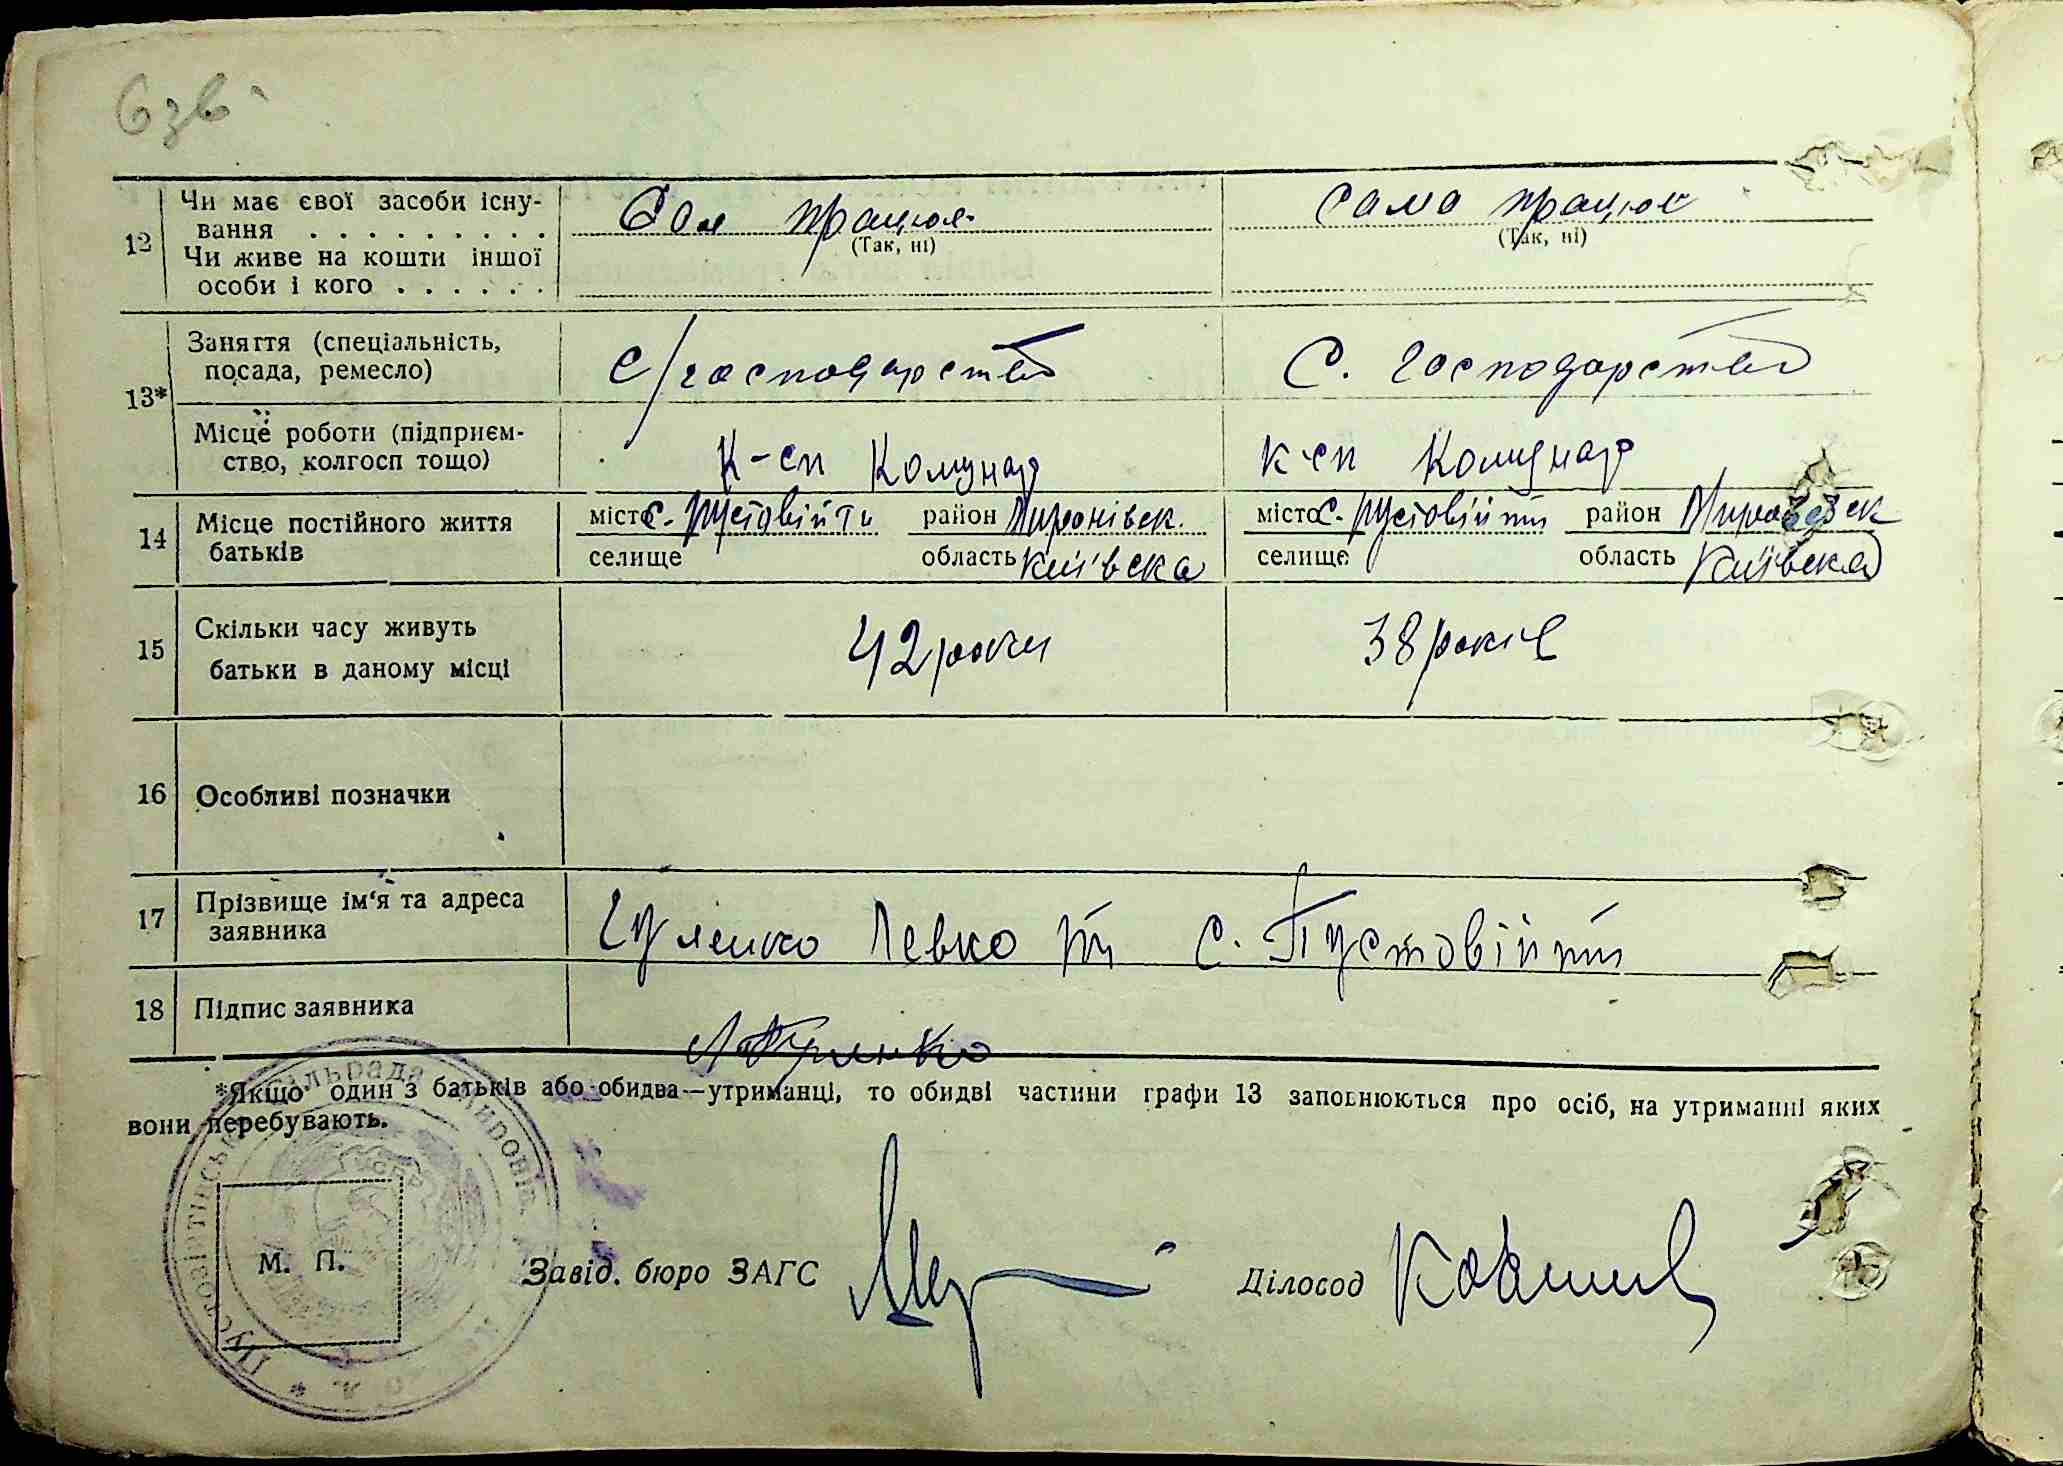 6зв
12
Чи має свої засоби існу-
вання . . . . . . . . .
Чи живе на кошти іншої
особи і кого . . . . . .
Сам працює
(Так, ні)
Сама працює
(Так, ні)
13*
Заняття (спеціальність,
посада, ремесло)
с/господарство
С. господарство
Місце роботи (підприєм-
ство, колгосп тощо)
К-сп Комунар
к-сп Комунар
14
Місце постійного життя
батьків
місто с. Пустовійти район Миронівськ.
селище область Київська
місто с. Пустовійти район Миронівськ
селище область Київська
15
Скільки часу живуть
батьки в даному місці
42 роки
38 років
16
Особливі позначки
17
Прізвище ім'я та адреса
заявника
Гуленко Левко с. Пустовійти
18
Підпис заявника
*Якщо один з батьків або обидва—утриманці, то обидві частини графи 13 заповнюються про осіб, на утриманні яких
вони перебувають.
М. П.
Завід. бюро ЗАГС
Діловод